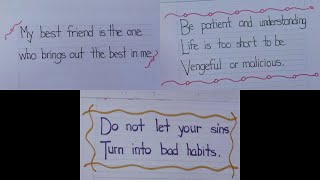 My best friend is the one
who brings out the best in me.
Be patient and understanding
Life is too short to be
Vengeful or malicious.
Do not let your sins
Turn into bad habits.